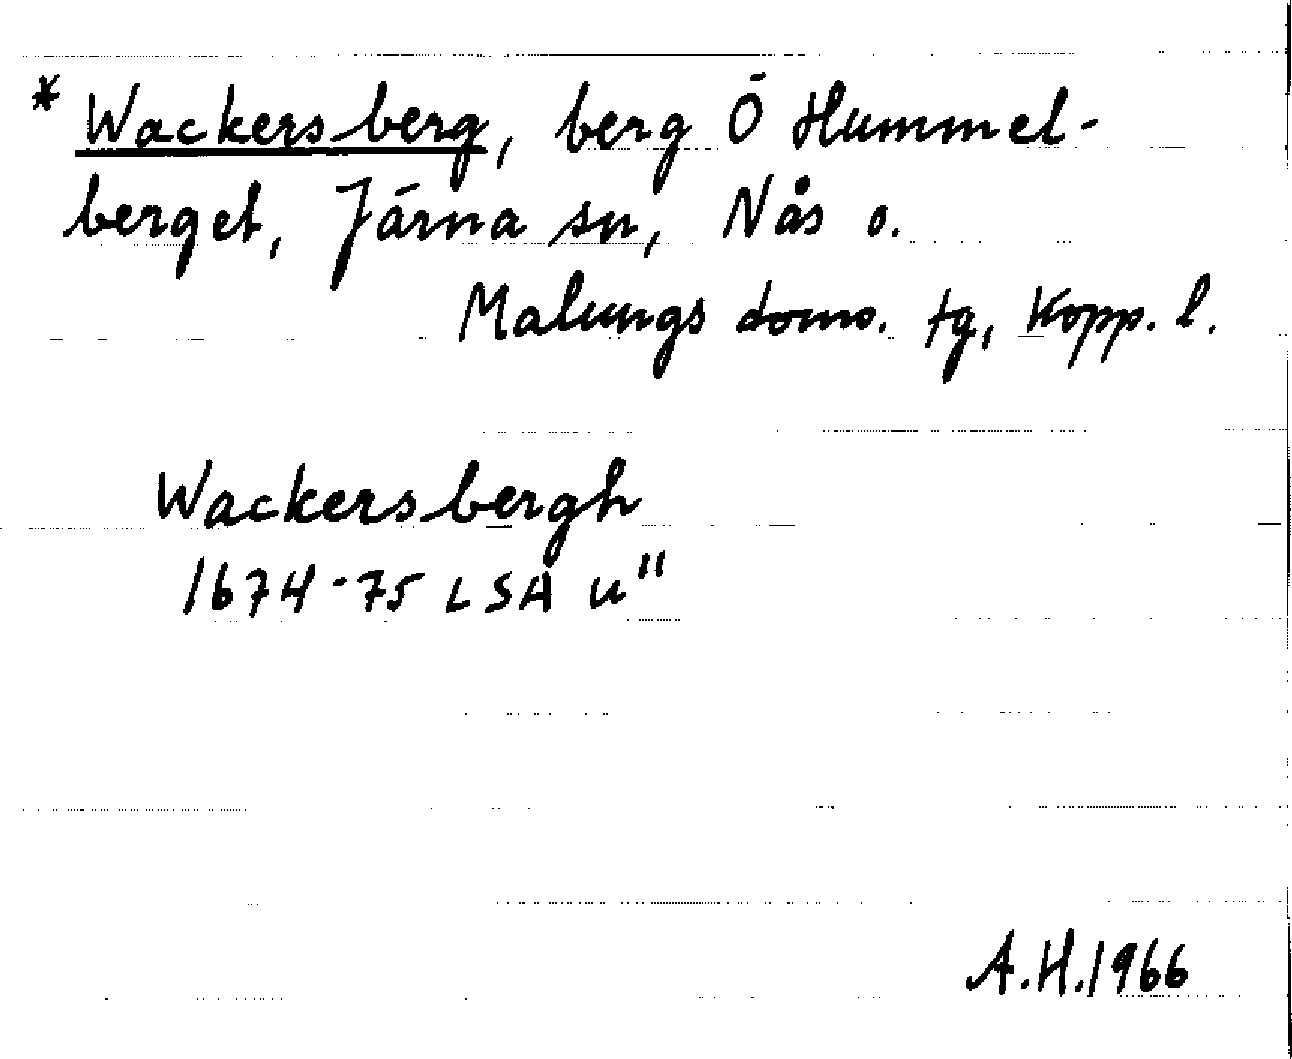 * Wackersberg, berg Ö Hummel-
berget, Järna sn, Nås o.
Malungs doms. tg, Kopp. l.
Wackersbergh
1674-75 LSA u"
A.H. 1966